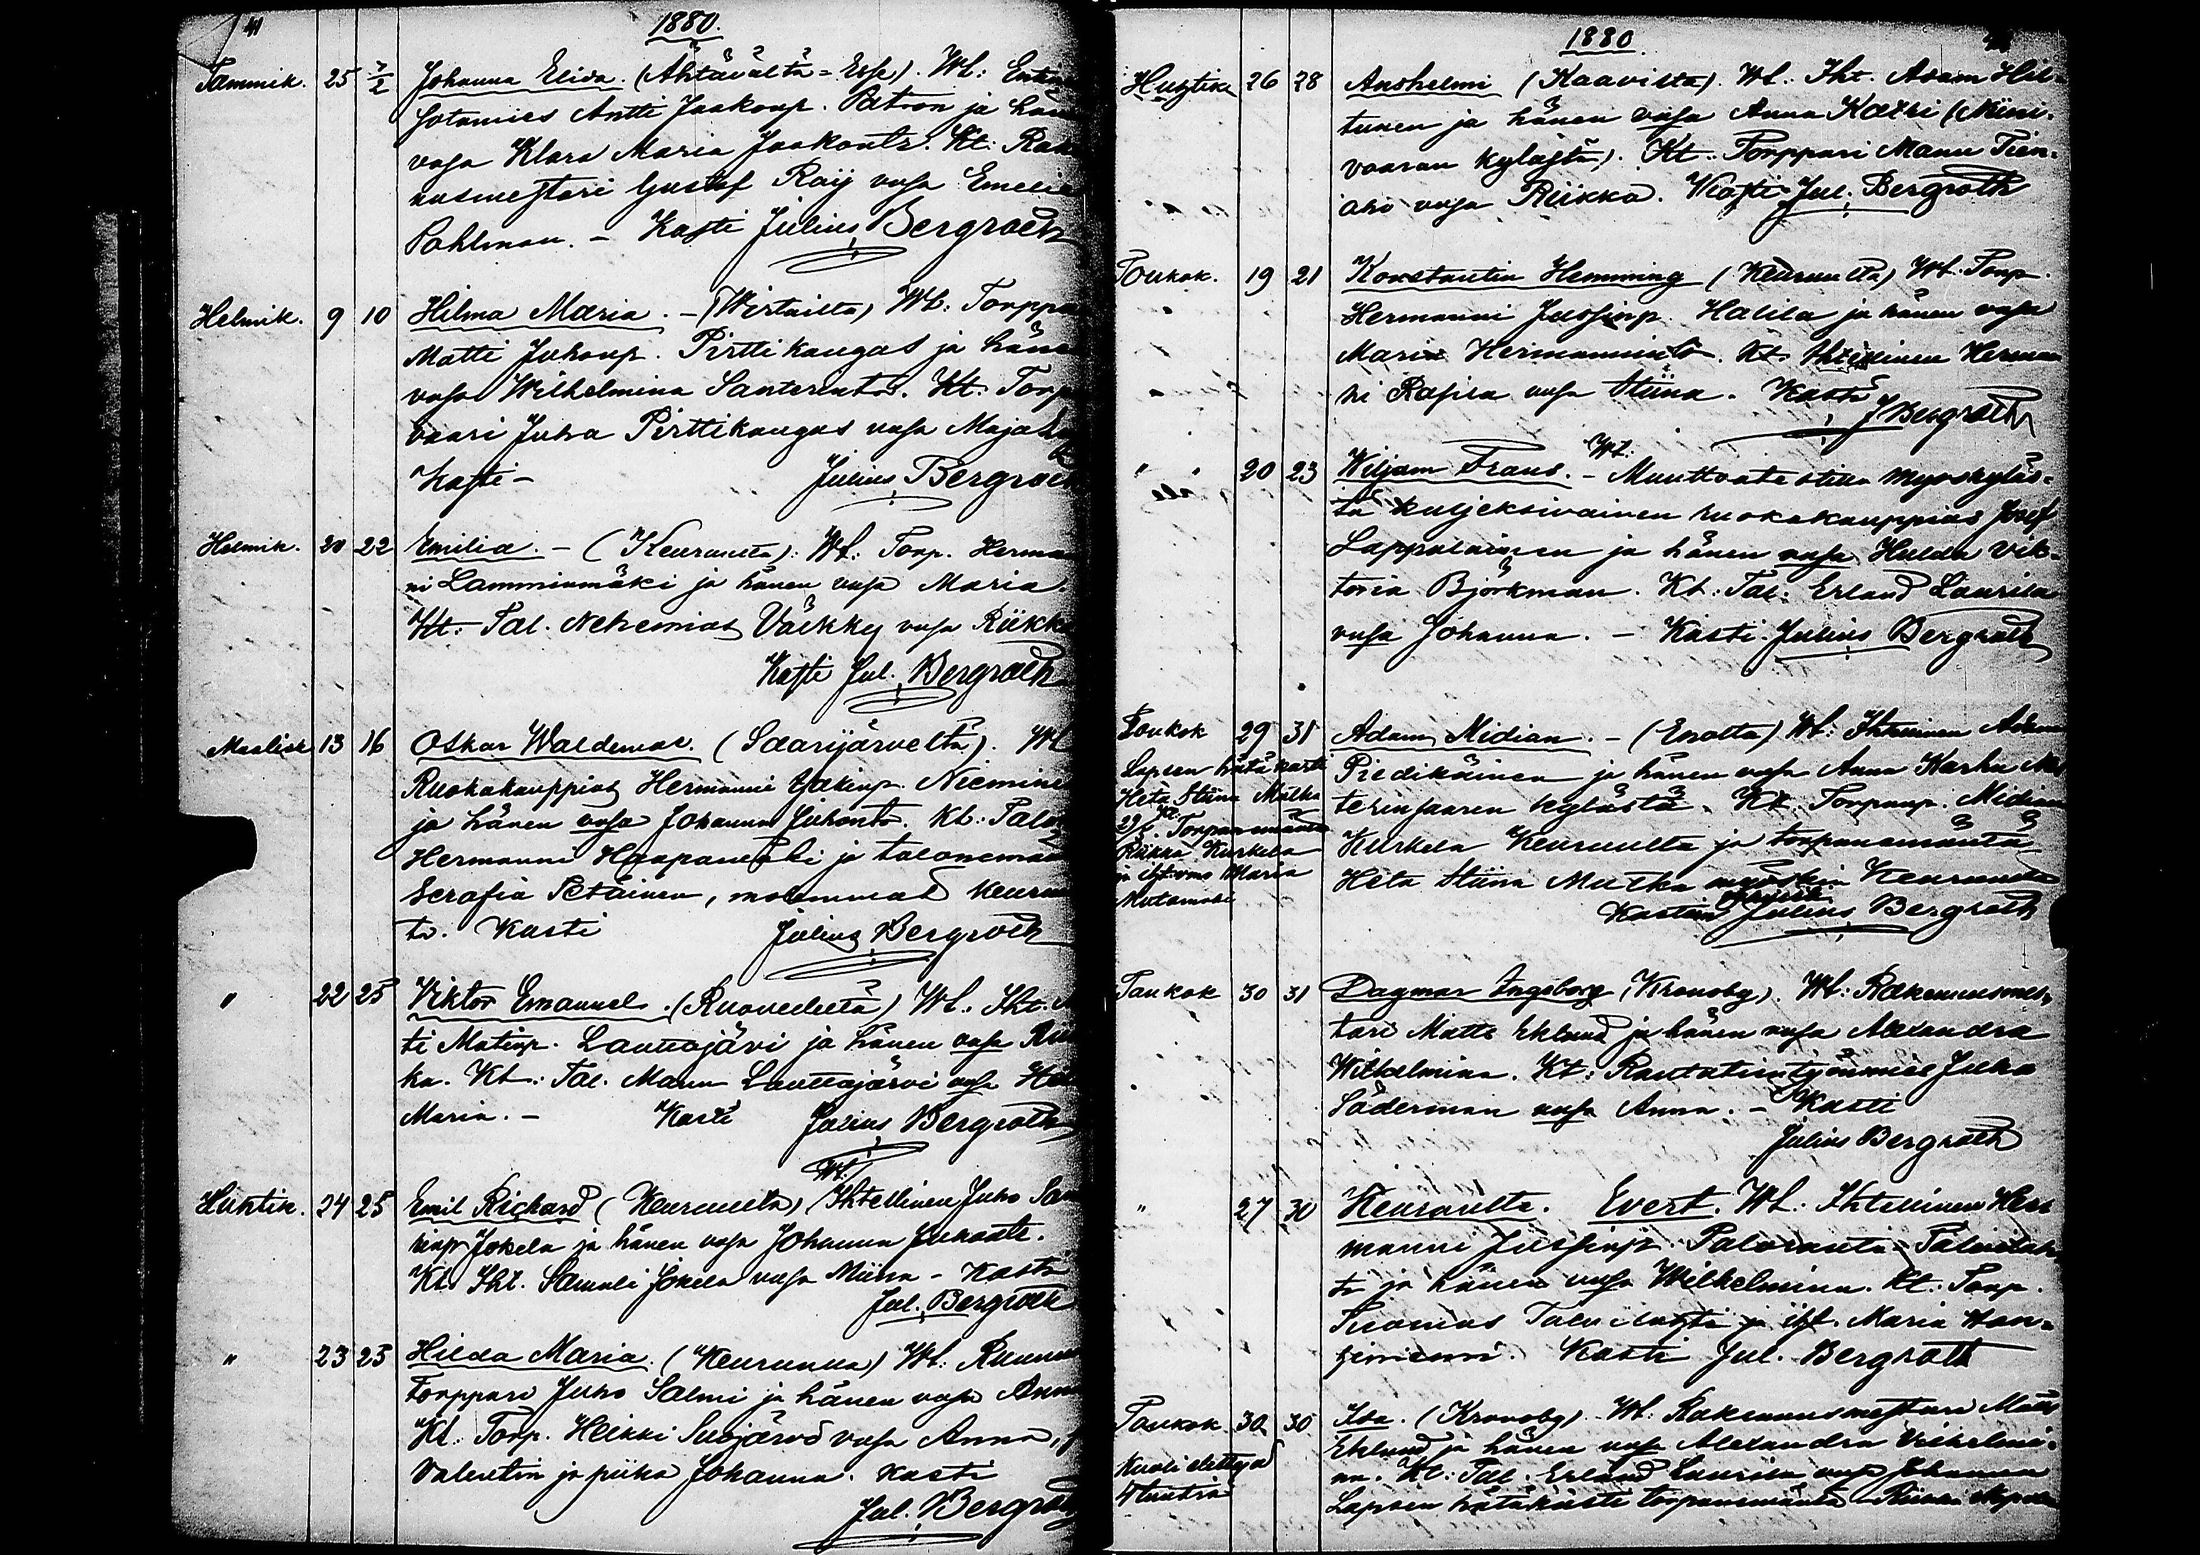 1880.
Tammik. 25 7/2 Johanna Elisa. (Ähtävältä = Esse). Wt:
Antti Jaakonp. Patron ja hän
vaſa Klara Maria Jaakontr. Kt: Rak
nusmeſtari Gustaf Raij vaſa Emelie
Pohlman. – Kaſti Julius Bergroth
Helmik. 9 10 Hilma Maria. – (Wirtailta) Wt: Torppa
Matti Juhonp. Pirttikangas ja häne
vaſa Wilhelmina Santerintr. Kt: Torp
vaari Juha Pirttikangas vaſa Maja
Kaſti – Julius Bergroth
Helmik. 20 22 Emilia. – (Keuruulta): Wt: Torp. Herman
ni Lamminmäki ja hänen vaſa Maria.
Kt: Tal. Nehemias Väkky vaſa Riikka
Kaſti Jul. Bergroth
Maalisk 13 16 Oskar Waldemar. (Saarijärveltä). Wt
Ruokakauppias Hermanni Niemine
ja hänen vaſa Johanna Juhontr. Kt: Talon
Hermanni Haapamäki ja talonemän
Serafia Petäinen, molemmat Keuruul
ta. Kasti Julius Bergroth
" 22 25 Viktor Emanuel. (Ruovedeltä) Wt. Iht.
ti Matinp. Lauttajärvi ja hänen vaſa Rii
ka. Kt: Tal. Manu Lauttajärvi vaſa
Maria. – Kasti Julius Bergroth
Huhtik. 24 25 Emil Richard (Keuruulta) Wt. Ihtellinen Juho Sam
Jokela ja hänen vaſa Johanna Juhontr.
Kt. Iht. Samuli Jokela vaſa Miina – Kasti
Jul. Bergroth
" 23 25 Hilda Maria. (Keuruulla) Wt: Ruunun
Torppari Juho Salmi ja hänen vaſa Anna
Kt: Torp. Heikki Suojärvi vaſa Anna,
Valentin ja piika Johanna. kasti
Jul. Bergroth
1880.
Huhtik 26 28 Anshelmi (Kaavista). Wt. Iht. Adam Hil-
tunen ja hänen vaſa Anna Katri (Niini-
vaaran kyläſtä). Kt: Torppari Manu Tien-
aho vaſa Riikka. Kaſti Jul. Bergroth
Toukok. 19 21 Konstantin Hemming (Keuruulta) Wt. Torp.
Hermanni Juſſinp. Halila ja hänen vaſa
Maria Hermannintr. Kt. Ihtellinen Herman
ni Raſila vaſa Stiina. Kasti
J Bergroth
" " 20 23 Wiljam Frans. – Wt. Muuttoateſtilla Myrskyläs-
tä kuljeksivainen ruokakauppias Josef
Lappalainen ja hänen vaſa Hulda Vik-
toria Björkman. Kt: Tal: Erland Laurila
vaſa Johanna. – Kasti Julius Bergroth
Toukok 29 31 Adam Midian. – (Enolta) Wt: Ihtellinen Adam
Piedikäinen ja hänen vaſa Anna Karhu
kylästä. Kt. Torpanp. Midian
Kurkela Keuruulta ja torpanemäntä
Heta Stiina Mutka myöskin Keuruulta
Kastein Julius Bergroth
Lapsen hätäkasti
Heta Stiina Mutka
29/5. Kt. Torpanemäntä
Riikka Kurkela
Maria
Mutamäki
Toukok 30 31 Dagmar Ingeborg (Kronoby). Wt: Rakennusmes-
tari Matts Eklund ja hänen vaſa Alexandra
Wilhelmina. Kt: Rautatientyönmies Juha
Söderman vaſa Anna. – Kasti
Julius Bergroth
" 27 30 Keuruulta. Evert. Wt: Ihtellinen Her
manni Juſſinp. Paloranta
ta ja hänen vaſa Wilhelmina. Kt: Torp.
Tuomas ja Maria
Kasti Jul. Bergroth
Toukok 30 30 Ida. (Kronoby). Wt: Rakennusmeſtari Matts
Eklund ja hänen vaſa Alexandra Vilhelmi-
na. Kt: Tal. Erland Laurila vaſa Johanna
Lapsen hätäkasti torpanemäntä
Kuoli elettyä
4 tuntia